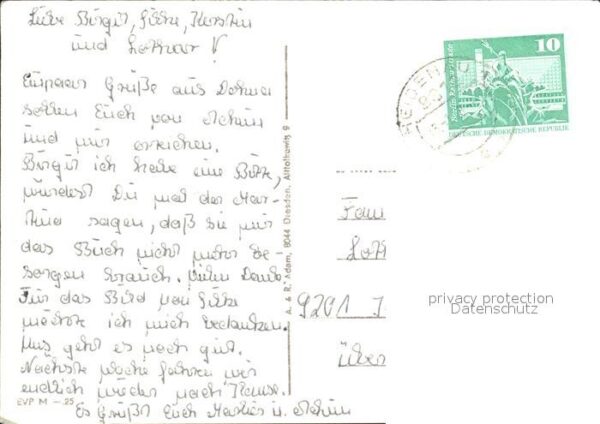 Liebe Birgit, Silke, Kerstin
und Lothar!
Ein paar Grüße aus Dohna
sollen Euch von Achim
und mir erreichen.
Birgit ich habe eine Bitte,
würdest Du mal der Mar-
tina sagen, daß sie mir
das Buch nicht mehr be-
sorgen brauch. Vielen Dank.
Für das Bild von Silke
möchte ich mich bedanken.
Uns geht es noch gut.
Nächste Woche fahren wir
endlich wieder nach Hause.
Es Grüßt Euch Marlies u. Achim
EVP M –.25
A. & R. Adam, 8044 Dresden, Altlolkewitz 9
10
Berlin
DEUTSCHE DEMOKRATISCHE REPUBLIK
Fam
Loth
9201
über
privacy protection
Datenschutz